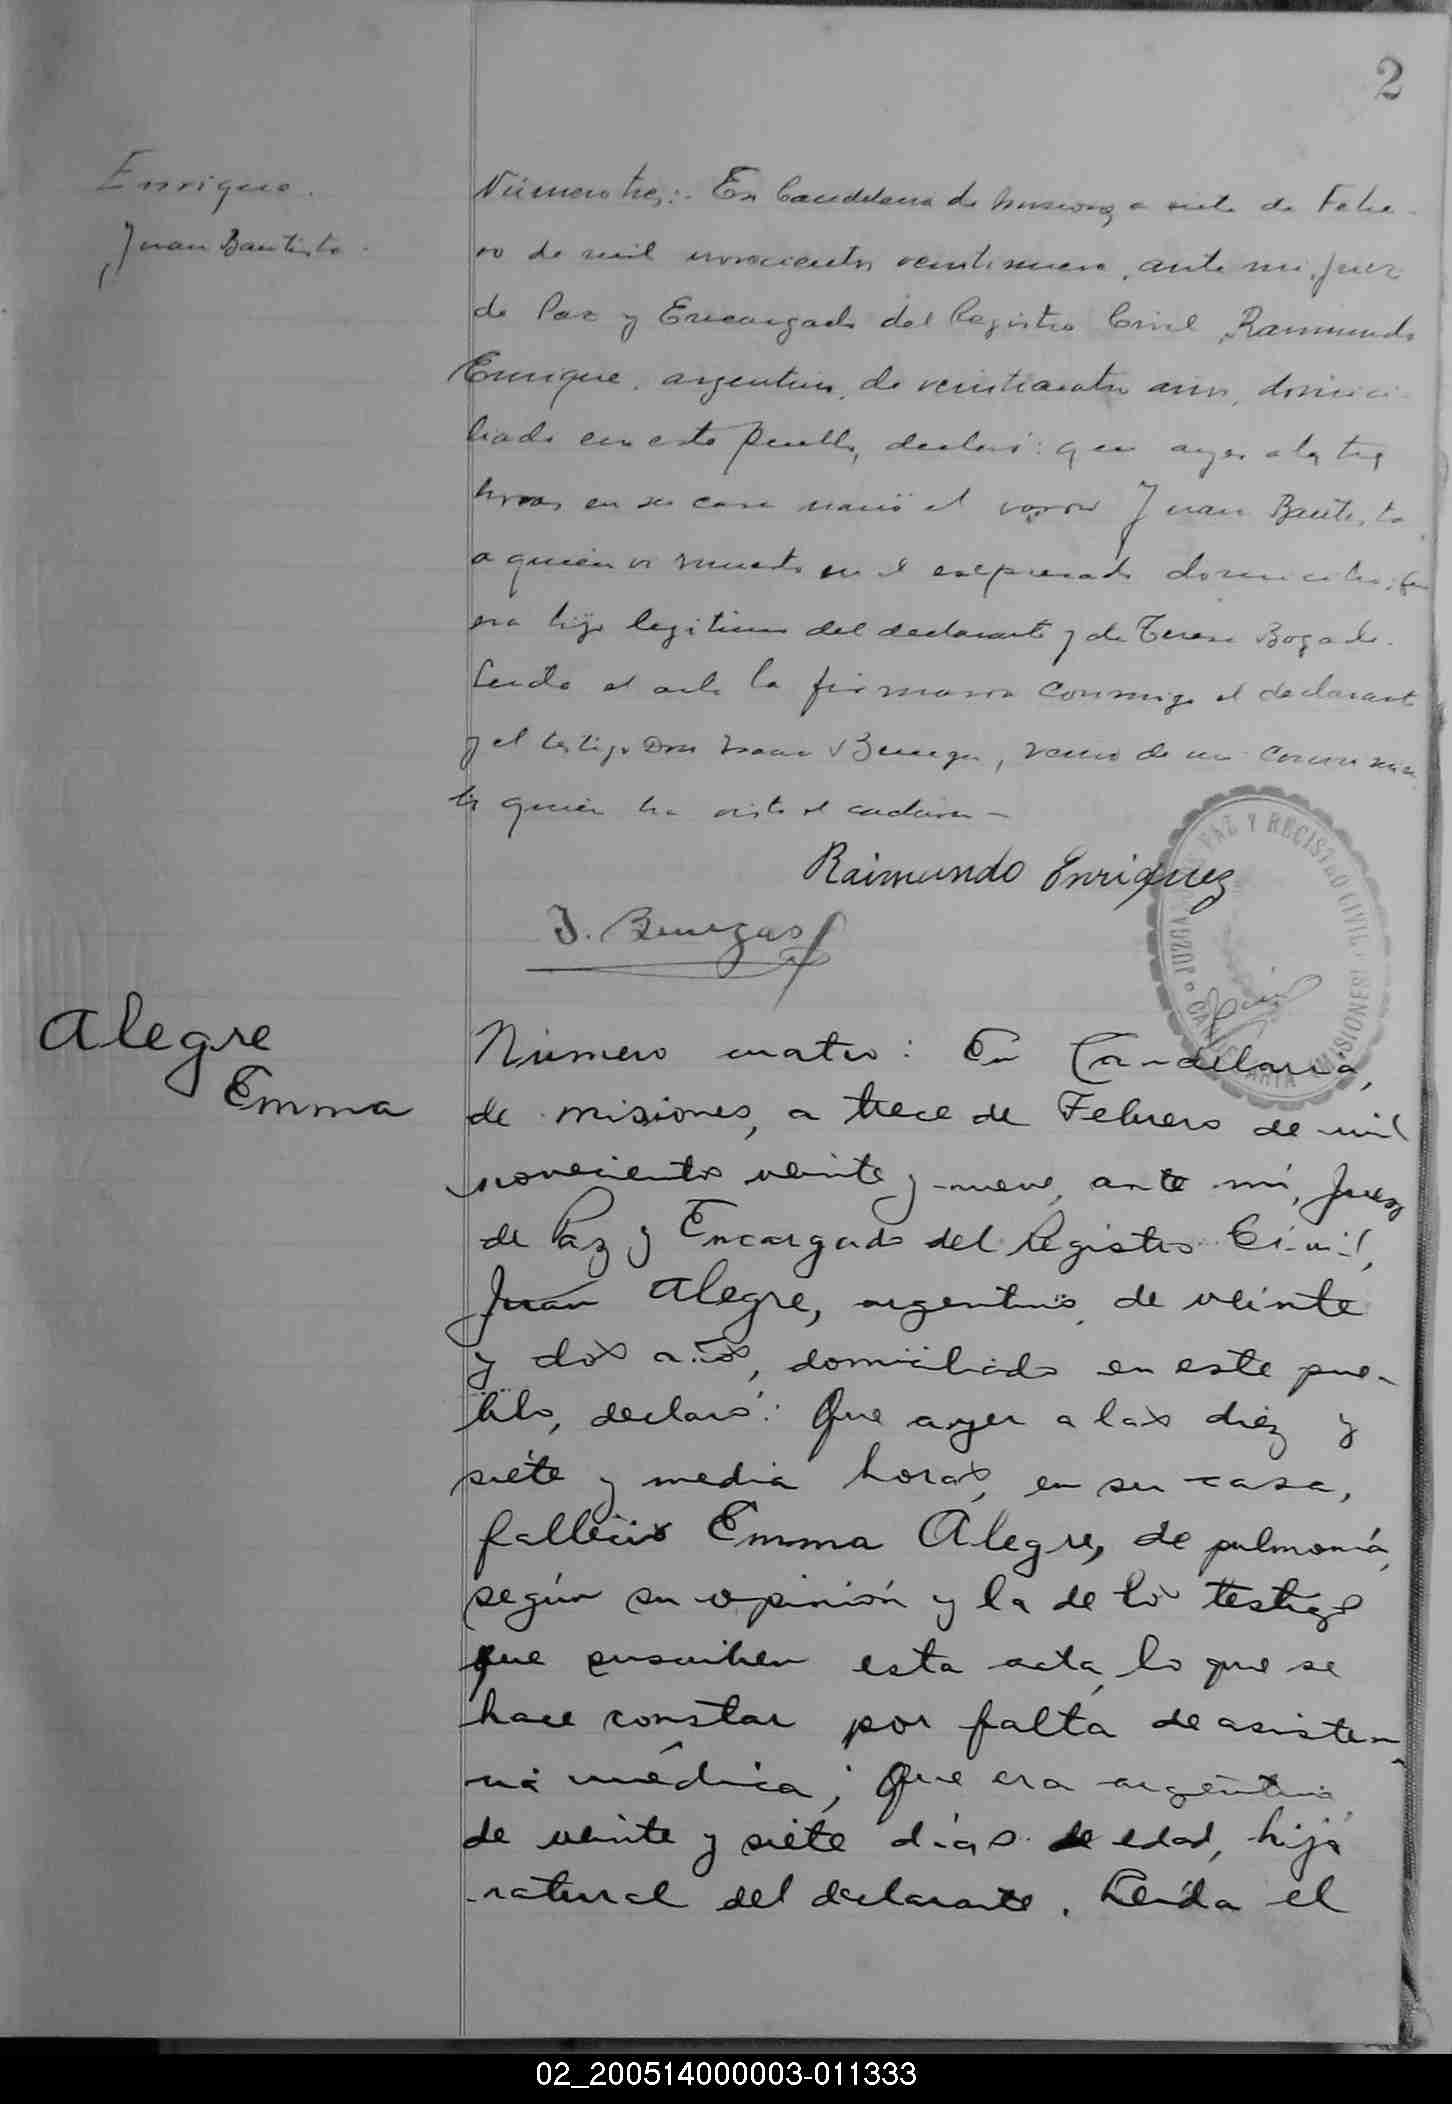 2
Enrique.
Juan Bautista.
Número tres:. En Candelaria de Misiones, a siete de Febre-
ro de mil novecientos veintinueve, ante mi, Juez
de Paz y Encargado del Registro Civil, Raimundo
Enrique, argentino, de veinticuatro años, domici-
liado en este pueblo, declaró: que ayer a las tres
horas en su casa nació el varon Juan Bautista
a quien vi muerto en el expresado domicilio; que
era hijo legitimo del declarante y de Teresa Bogado.
Leida el acta la firmaron conmigo el declarante
y el testigo Don Isaac Benega, vecino de
quien ha visto el cadaver—
Raimundo Enriquez
J. Benegas
JUZGADO DE PAZ Y REGISTRO CIVIL
CANDELARIA (MISIONES)
Alegre
Emma
Número cuatro: En Candelaria,
de misiones, a trece de Febrero de mil
novecientos veinte y nueve, ante mí, Juez
de Paz y Encargado del Registro Civil,
Juan Alegre, argentino, de veinte
y dos años, domiciliado en este pue-
blo, declaró: Que ayer a las diez y
siete y media horas, en su casa,
falleció Emma Alegre, de pulmonía,
según su opinión y la de los testigos
que suscriben esta acta, lo que se
hace constar por falta de asisten-
cia médica; Que era argentina,
de veinte y siete días de edad, hija
natural del declarante. Leída el
02_200514000003-011333